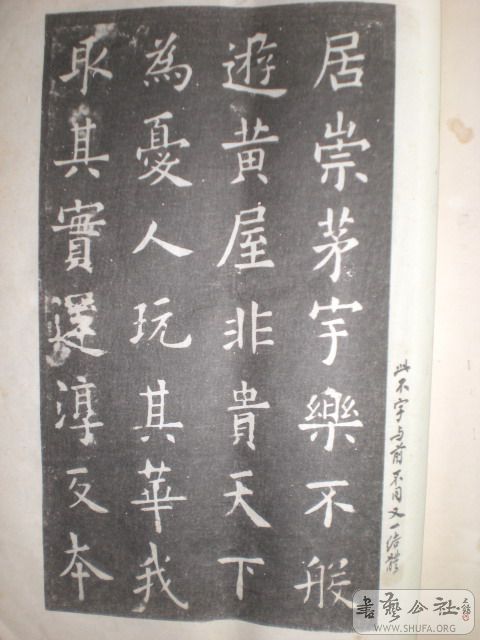 居崇茅宇樂不般
遊黄屋非貴天下
為憂人玩其華我
取其實還淳反本
此不字与前不同又一结體
書藝公社
WWW.SHUFA.ORG